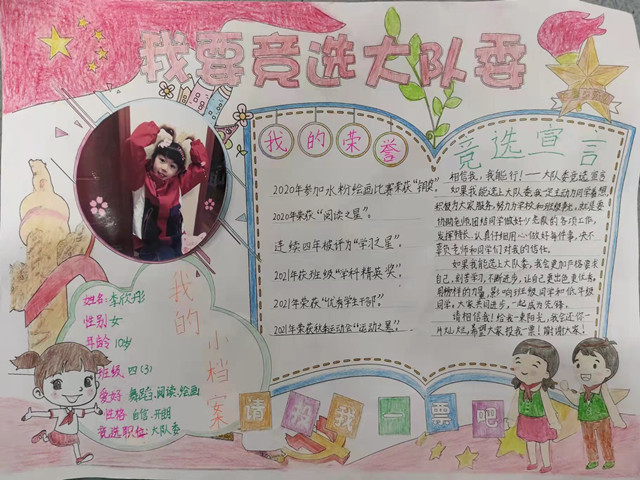 我要竞选大队委
我的荣誉
2020年参加水粉绘画比赛荣获“铜奖”
2020年荣获“阅读之星”。
连续四年被评为“学习之星”。
2021年获班级“学科精英奖”。
2021年荣获“优秀学生干部”。
2021年荣获秋季运动会“运动之星”。
竞选宣言
相信我，我能行！——大队委竞选宣言
如果我能选上大队委我一定主动为同学着想，
积极为大家服务，努力为学校和班级争光，就是要
协助老师，团结同学做好少先队的各项工作，
发挥特长，认真仔细用心做好每件事，决不
辜负老师和同学们对我的信任。
如果我能选上大队委，我会更加严格要求
自己，刻苦学习，不断进步，让自己更出色更优秀，
用榜样的力量，影响班级同学和低年级
同学，大家共同进步，一起成为先锋。
请相信我！给我一束阳光，我会还你一
片灿烂，希望大家投我一票！谢谢大家！
我的小档案
姓名：李欣彤
性别：女
年龄：10岁
班级：四（3）
爱好：舞蹈、阅读、绘画
性格：自信、开朗
竞选职位：大队委
请投我一票吧